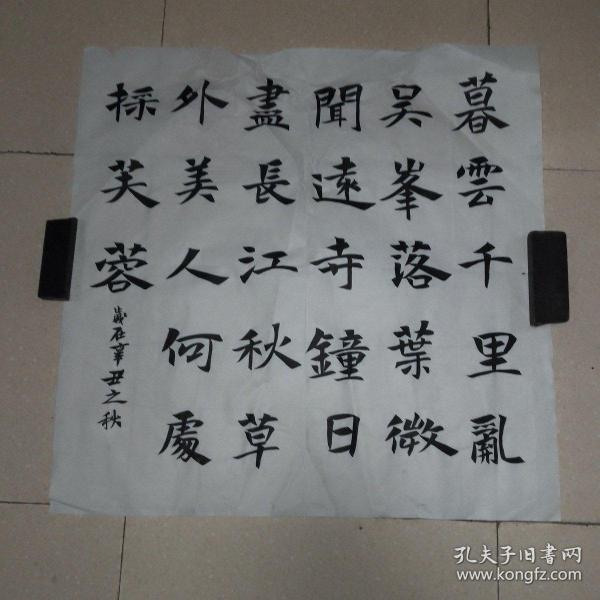 暮雲千里亂
吳峯落葉微
聞遠寺鐘日
盡長江秋草
外美人何處
採芙蓉
歲在辛丑之秋
孔夫子旧书网
www.kongfz.com